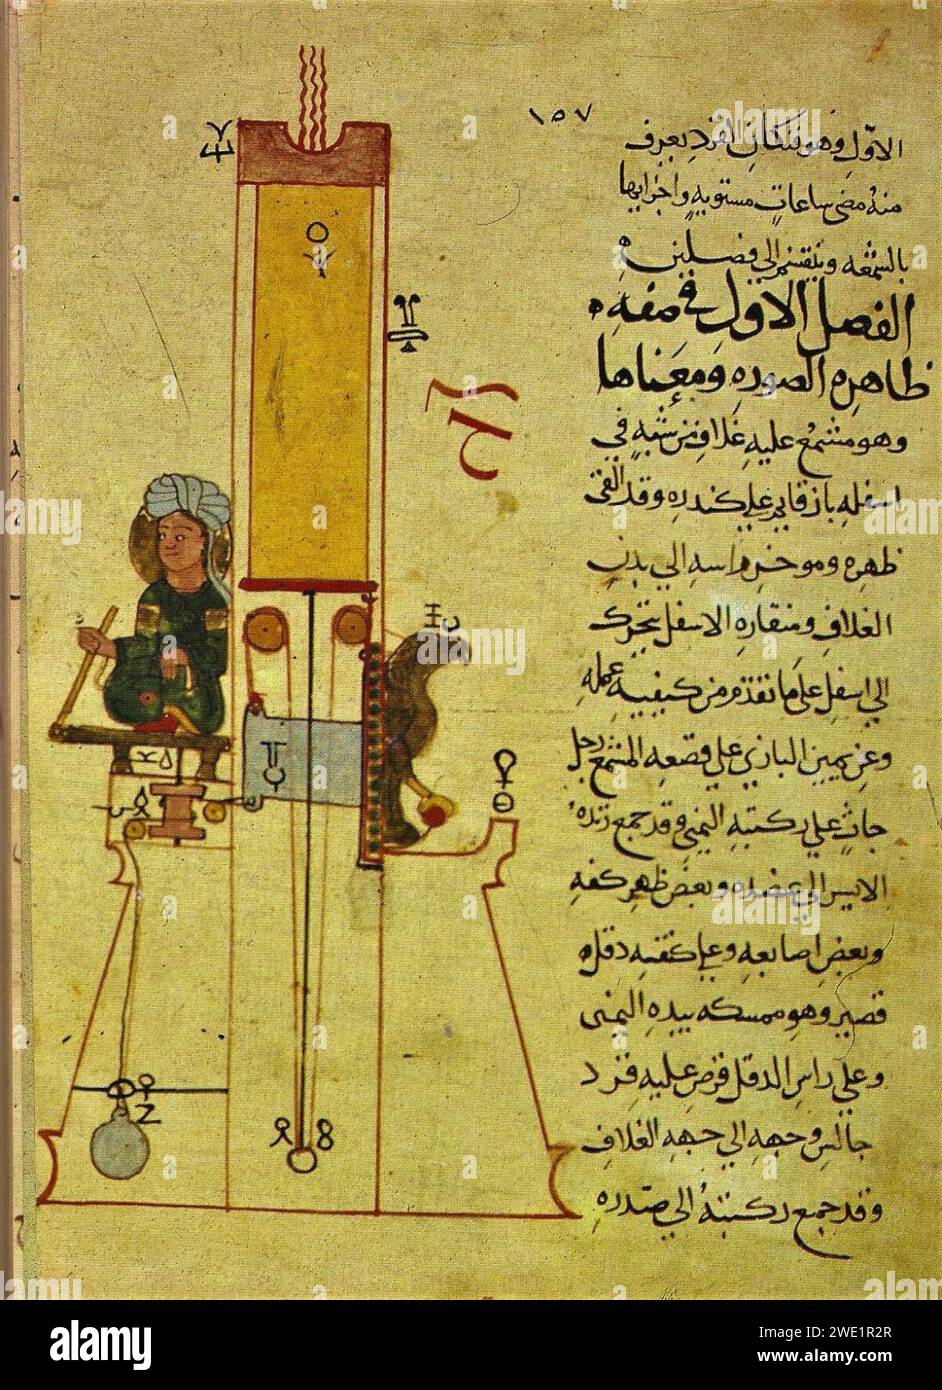 ١٥٧
الاول وهو فنكان القرد يعرف
منه مضى ساعات مستويه واجزايها
بالشمعه وينقسم الى فصلين
الفصل الاول في صفه
ظاهره الصوره ومعناها
وهو مشمع عليه غلاف من شبه في
اسفله باز قايم على كندره وقد القى
ظهره وموخر راسه الى بدن
الغلاف ومنقاره الاسفل يتحرك
الى اسفل على ما تقدم من كيفيه عمله
وعن يمين البازي على قصعه المشمع رجل
جاث على ركبته اليمنى وقد جمع زنده
الايسر الى عضده وبعض ظهر كفه
وبعض اصابعه وعلى كتفه دقل
قصير وهو ممسكه بيده اليمنى
وعلى راس الدقل قرص عليه قرد
جالس وجهه الى جهه الغلاف
وقد جمع ركبتيه الى صدره
alamy
Image ID: 2WE1R2R
www.alamy.com